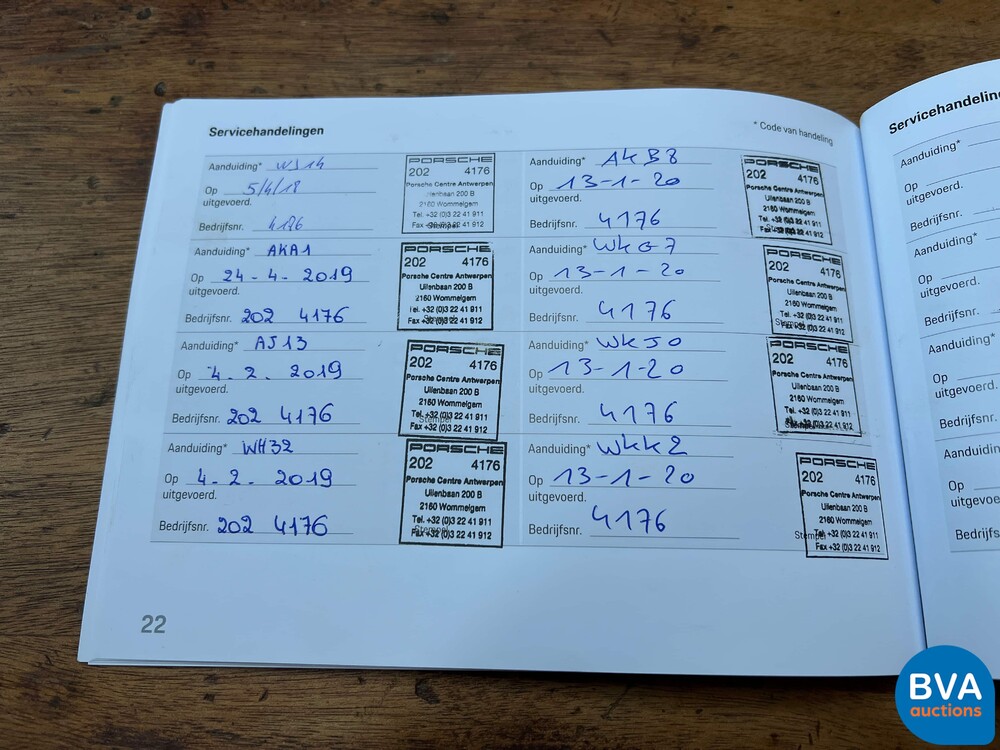 Servicehandelingen
* Code van handeling
Aanduiding* WJ14
Op 5/4/18
uitgevoerd.
Bedrijfsnr. 4176
PORSCHE
202 4176
Porsche Centre Antwerpen
Uilenbaan 200 B
2160 Wommelgem
Tel. +32 (0)3 22 41 911
Fax +32 (0)3 22 41 912
Stempel
Aanduiding* AKA1
Op 24-4-2019
uitgevoerd.
Bedrijfsnr. 202 4176
PORSCHE
202 4176
Porsche Centre Antwerpen
Uilenbaan 200 B
2160 Wommelgem
Tel. +32 (0)3 22 41 911
Fax +32 (0)3 22 41 912
Stempel
Aanduiding* AJ13
Op 4.2.2019
uitgevoerd.
Bedrijfsnr. 202 4176
PORSCHE
202 4176
Porsche Centre Antwerpen
Uilenbaan 200 B
2160 Wommelgem
Tel. +32 (0)3 22 41 911
Fax +32 (0)3 22 41 912
Stempel
Aanduiding* WH32
Op 4.2.2019
uitgevoerd.
Bedrijfsnr. 202 4176
PORSCHE
202 4176
Porsche Centre Antwerpen
Uilenbaan 200 B
2160 Wommelgem
Tel. +32 (0)3 22 41 911
Fax +32 (0)3 22 41 912
Stempel
Aanduiding* AKB8
Op 13-1-20
uitgevoerd.
Bedrijfsnr. 4176
PORSCHE
202 4176
Porsche Centre Antwerpen
Uilenbaan 200 B
2160 Wommelgem
Tel. +32 (0)3 22 41 911
Fax +32 (0)3 22 41 912
Stempel
Aanduiding* WKG7
Op 13-1-20
uitgevoerd.
Bedrijfsnr. 4176
PORSCHE
202 4176
Porsche Centre Antwerpen
Uilenbaan 200 B
2160 Wommelgem
Tel. +32 (0)3 22 41 911
Fax +32 (0)3 22 41 912
Stempel
Aanduiding* WKJ0
Op 13-1-20
uitgevoerd.
Bedrijfsnr. 4176
PORSCHE
202 4176
Porsche Centre Antwerpen
Uilenbaan 200 B
2160 Wommelgem
Tel. +32 (0)3 22 41 911
Fax +32 (0)3 22 41 912
Stempel
Aanduiding* WKK2
Op 13-1-20
uitgevoerd.
Bedrijfsnr. 4176
PORSCHE
202 4176
Porsche Centre Antwerpen
Uilenbaan 200 B
2160 Wommelgem
Tel. +32 (0)3 22 41 911
Fax +32 (0)3 22 41 912
Stempel
22
Aanduiding*
Op
uitgevoerd.
Bedrijfsnr.
Aanduiding*
Op
uitgevoerd.
Bedrijfsnr.
Aanduiding*
Op
uitgevoerd.
Bedrijfsnr.
Op
BVA
auctions